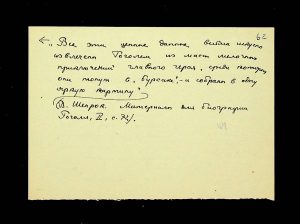 62
← „Все эти ценные данные
извлечены Гоголем из массы мелочных
приключений главного героя, среди которых
они тонут в „бурсаке“, и собраны в одну
яркую картину“
В. Шенрок. Материалы для биографии
Гоголя, II, с.